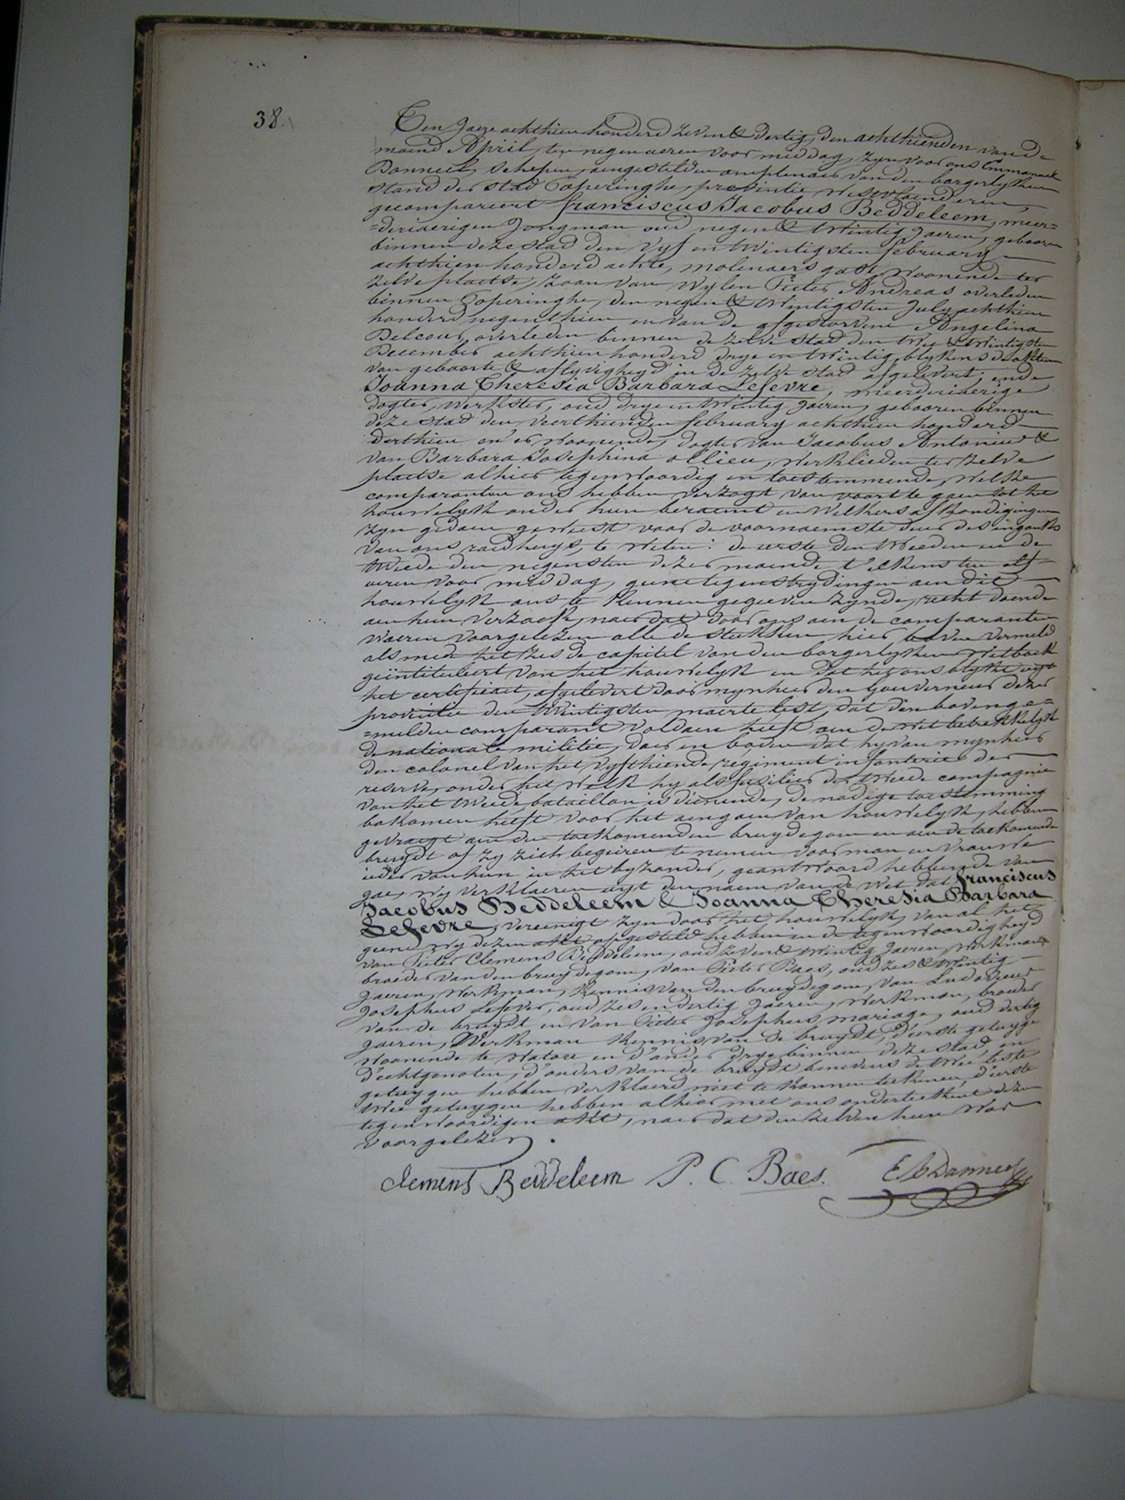 38.
Ten Jaere achthien honderd zeven & dertig, den achthienden van de
maend April, ten negen aeren voor middag, zyn voor ons Emmanuel
Banneel, Schepen, aengestelden amptenaer van den borgerlyken
stand der stad Poperinghe, provintie Westvlaenderen,
gecompareert franciscus Jacobus Beddeleem, meer=
=derjaerigen Jongman oud negen & twintig Jaeren, gebooren
binnen deze stad den vyf en twintigsten february
achthien honderd achte, molenaers gast, woonende ter
zelve plaetse, zoon van wylen Pieter Andreas overleden
binnen Poperinghe, den negen & twintigsten July achthien
honderd negenthien en van de afgestorvene Angelina
Delcour, overleden binnen de zelve stad den twee & twintigsten
December achthien honderd drye en twintig, blykens de akten
van geboorte & aflyvigheyd in de zelve stad afgelevert; ende
Joanna Theresia Barbara Lefevre, meerderjaerige
dogter, werkster, oud drye en twintig Jaeren, gebooren binnen
deze stad den veerthienden february achthien honderd
derthien en er woonende, dogter van Jacobus Antonius &
van Barbara Josephina ollieu, werklieden ter zelve
plaetse alhier tegenwoordig en toestemmende, welke
comparanten ons hebben verzogt van voort te gaen tot het
houwelyk onder hun beraemt en welkers afkondigingen
zyn gedaen geweest voor de voornaemste deur des ingankx
van ons raedhuys, te weten: de eerste den tweeden en de
tweede den negensten dezer maende t'elkens ten elf
aeren voor middag, geene tegenstrydingen aen dit
houwelyk ons te kennen gegeven zynde, recht doende
aen hun verzoek, naer dat door ons aen de comparanten
waeren voorgelezen alle de stukken hier boven vermeld
als mede het zesde capitel van den borgerlyken Wetboek
geintituleert van het houwelyk en dat het ons blykt uyt
het certificaet, afgelevert door mynheer den Gouverneur dezer
provintie den twintigsten maerte lest, dat den bovenge=
=melden comparant voldaen heeft aen de wet betrekkelyk
de nationale militie, daer en boven dat hy van mynheer
den colonel van het vyfthiende regiment infanterie der
reserve, onder het welk hy als fuselier der tweede compagnie
van het tweede bataillon is dienende, de nodige toestemming
bekomen heeft voor het aengaen van houwelyk, hebben
gevraegt aen den toekomenden bruydegom en aen de toekomende
bruydt of zy zich begeiren te nemen voor man en vrouwe
ieder van hun in het byzonder, geantwoord hebbende van
jae, wy verklaeren uyt den naem van de Wet dat franciscus
Jacobus Beddeleem & Joanna Theresia Barbara
Lefevre, vereenigt zyn door het houwelyk, van al het
geene wy dezen akt opgestelt hebben in de tegenwoordigheyd
van Pieter Clemens Beddeleem, oud zeven & twintig Jaeren, werkman
broeder van den bruydegom, van Pieter Baes, oud zes & twintig
Jaeren, werkman, kennis van den bruydegom, van Ludovicus
Josephus Lefever, oud zes en dertig Jaeren, werkman, broeder
van de bruydt en van Pieter Josephus mariage, oud dertig
jaeren, Werkman kennis van de bruydt, d'eerste getuyge
woonende te Watou en d'ander drye binnen deze stad, en
d'echtgenoten, d'ouders van de bruydt benevens de twee leste
getuygen hebben verklaerd niet te konnen teekenen, d'eerste
twee getuygen hebben alhier met ons onderteekent dezen
tegenwoordigen akt, naer dat den zelven hun was
voorgelezen.
Clemens Beddeleem P. C. Baes.